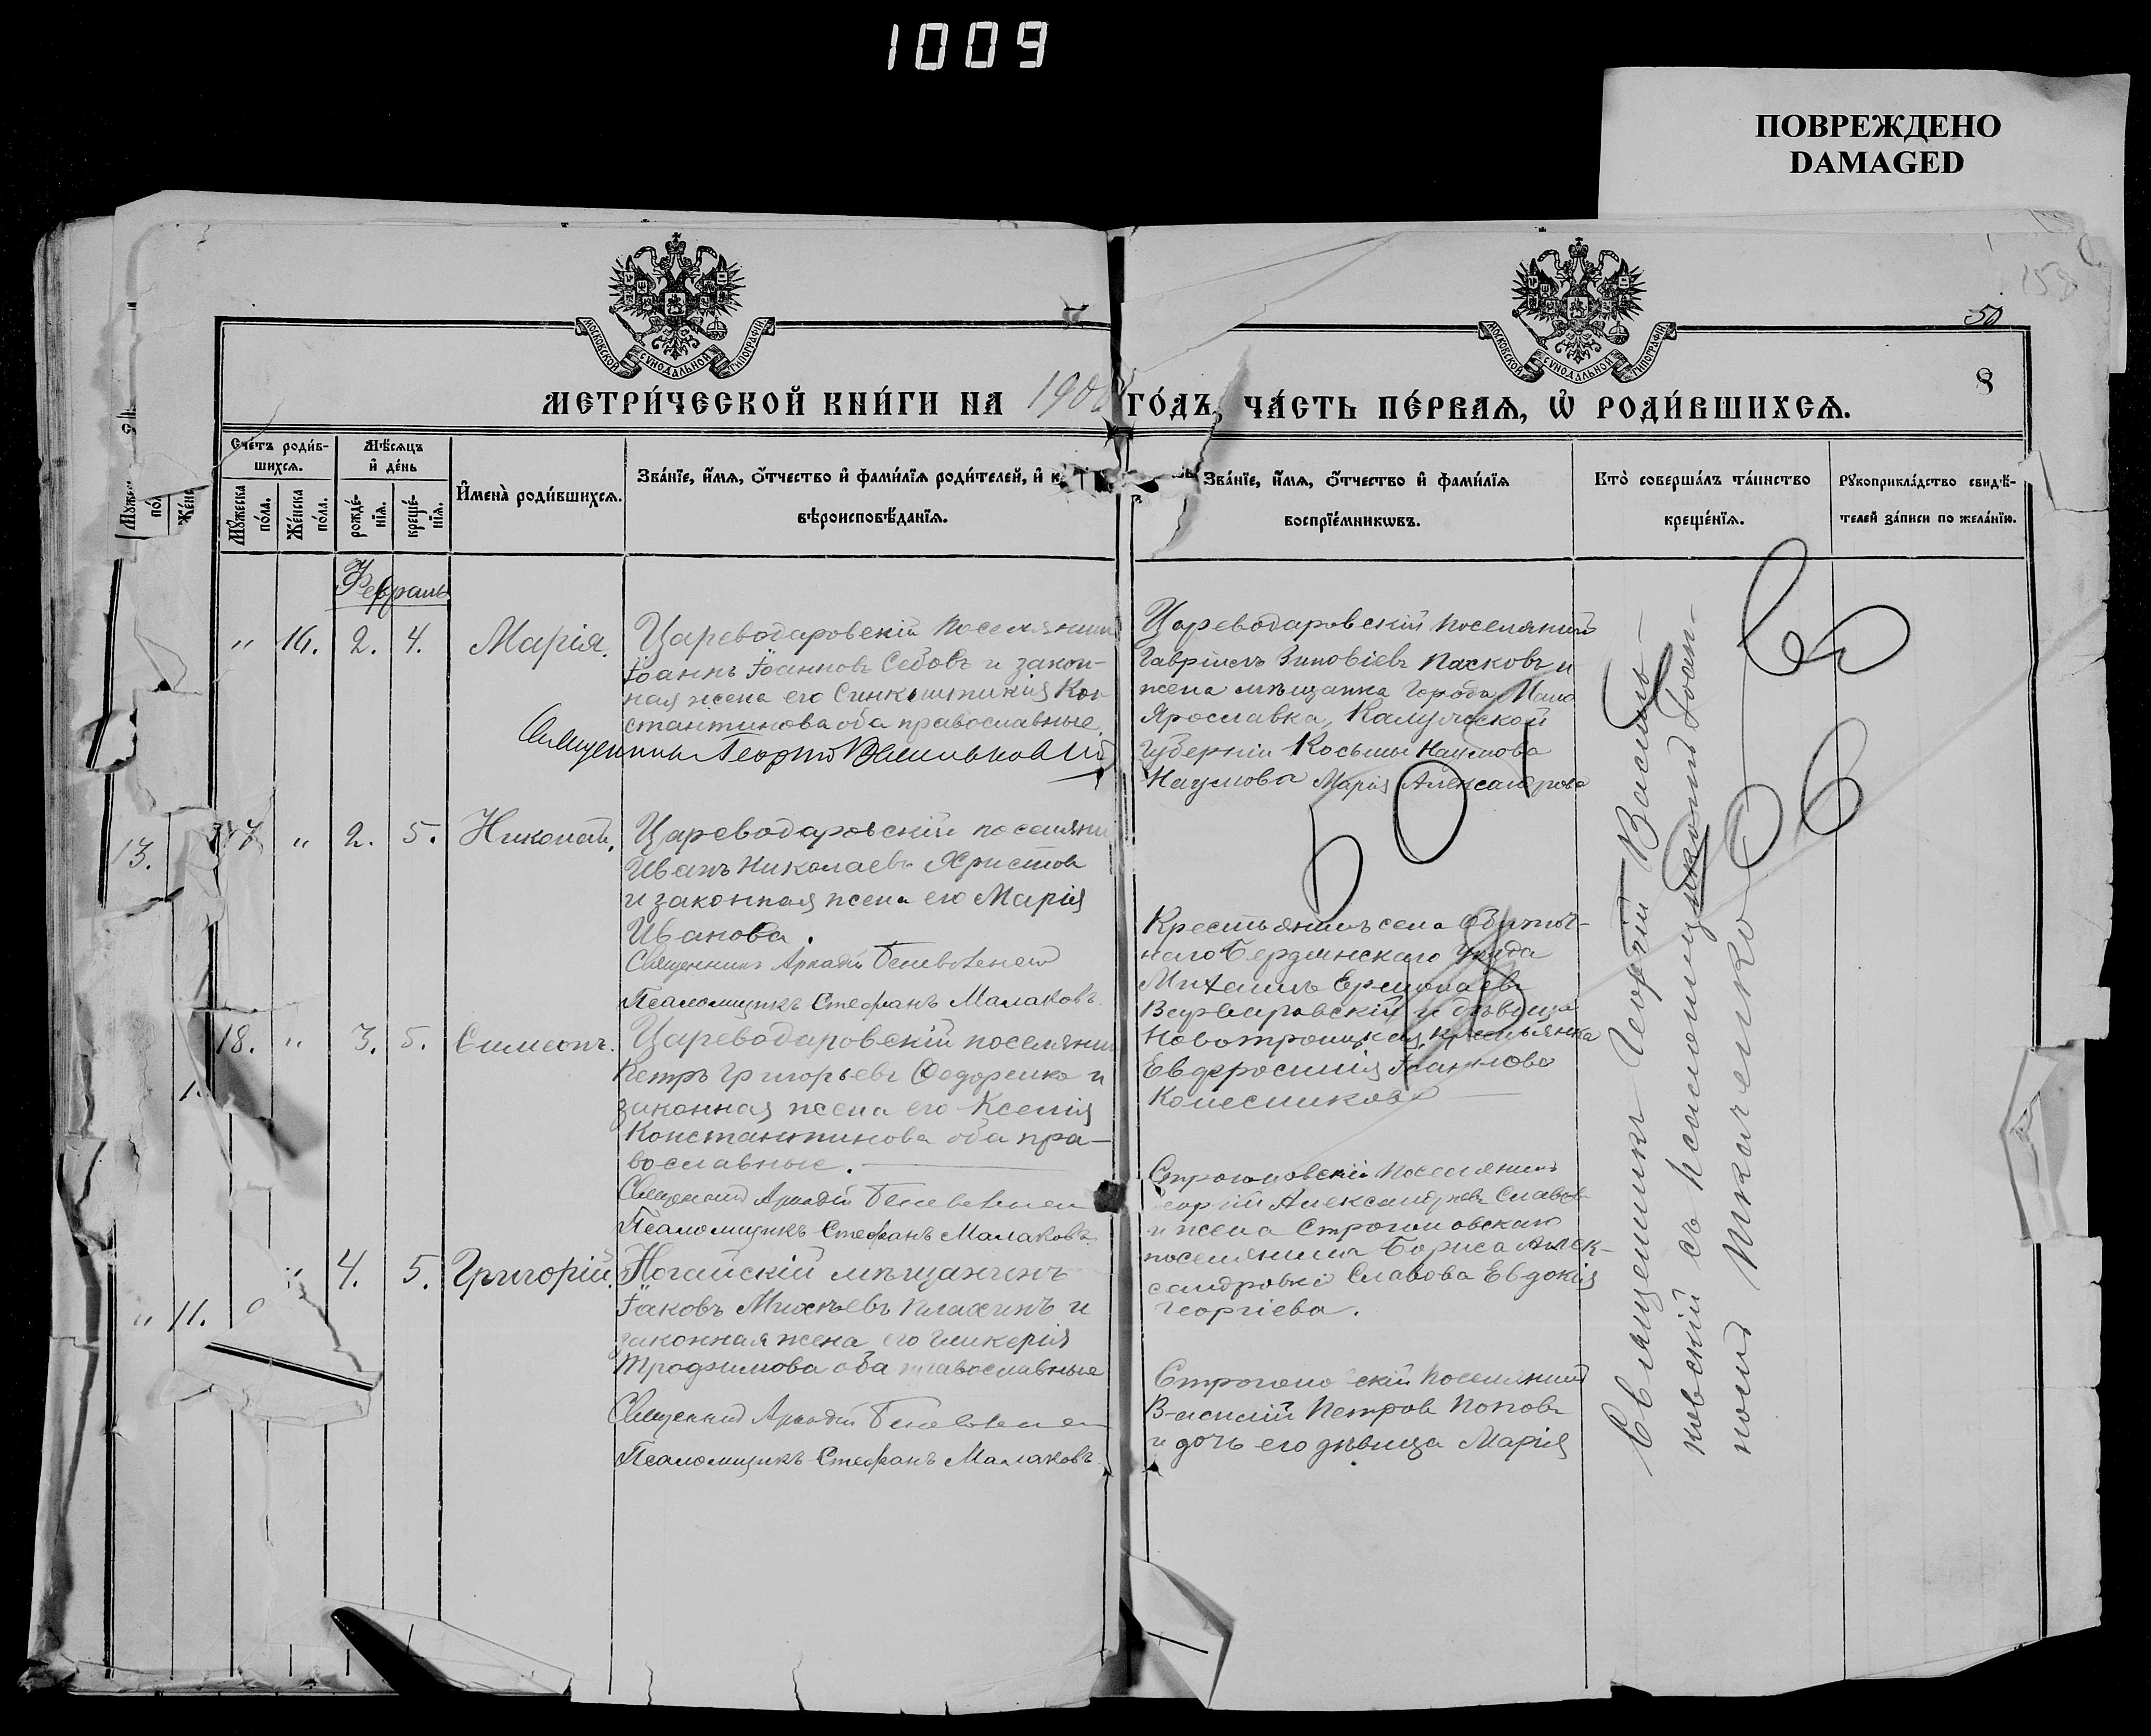 1009
ПОВРЕЖДЕНО
DAMAGED
МОСКОВСКОЙ СУНОДАЛЬНОЙ ТИПОГРАФІИ
МОСКОВСКОЙ СУНОДАЛЬНОЙ ТИПОГРАФІИ
50
8
МЕТРИ́ЧЕСКОЙ КНИ́ГИ НА 190 ГО́ДЪ, ЧА́СТЬ ПЕ́РВАЯ, Ѡ҆ РОДИ́ВШИХСЯ.
Сче́тъ роди́в-
шихся.
Мѣ́сяцъ
и҆ де́нь
Мꙋ́жеска по́ла.
Же́нска по́ла.
рожде́-
нїя.
креще́-
нїя.
И҆мена̀ роди́вшихся.
Зва́нїе, и҆́мя, ѻ҆́тчество и҆ фами́лїя роди́телей, и҆ к
вѣроисповѣ́данїя.
Зва́нїе, и҆́мя, ѻ҆́тчество и҆ фами́лїя
воспрїе́мникѡвъ.
Кто̀ соверша́лъ та́инство
креще́нїя.
Рꙋкоприкла́дство свидѣ́-
телей за́писи по жела́нїю.
Февраль
" 16. 2. 4. Марія.
Цареводаровскій поселянинъ
Іоаннъ Іоанновъ Седовъ и закон-
ная жена его Синклитикія Кон
стантинова оба православные.
Священникъ Георгій Васильковскій
Цареводаровскій поселянинъ
Гавріилъ Зиновіевъ Пасковъ и
жена мѣщанка города Мало
Ярославка, Калужской
губерніи Косьмы Наумова
Наумова Марія Александрова
17 " 2. 5. Николай.
Цареводаровскій поселяни
Иванъ Николаевъ Христов
и законная жена его Марія
Иванова.
Священникъ Аркадій
Псаломщикъ Стефанъ Малаковъ.
Крестьянинъ села Обиточ-
наго Бердянскаго уѣзда
Михаилъ Ермолаевъ
Варваровскій и дѣвица
Новотроицкая крестьянка
Евфросинія
Колесникова
18. " 3. 5. Симеонъ.
Цареводаровскій поселянин
Петръ Григорьевъ Федоренко и
законная жена его Ксенія
Константинова оба пра-
вославные.
Священникъ Аркадій
Псаломщикъ Стефанъ Малаковъ.
Строгоновскій поселянинъ
Георгій Александровъ Славов
и жена Строгоновскаго
поселянина Бориса Алек-
сандрова Славова Евдокія
Георгіева.
" 4. 5. Григорій.
Ногайскій мѣщанинъ
Іаковъ Михѣевъ Плахинъ и
законная жена его Гликерія
Трофимова оба православные
Священникъ Аркадій
Псаломщикъ Стефанъ Малаковъ.
Строгоновскій поселянинъ
Василій Петров Попов
и дочь его дѣвица Марія
Священникъ Георгій Василь-
ковскій съ псаломщикомъ Іоан-
номъ Ткаченко
501
13.
1.
" 11.